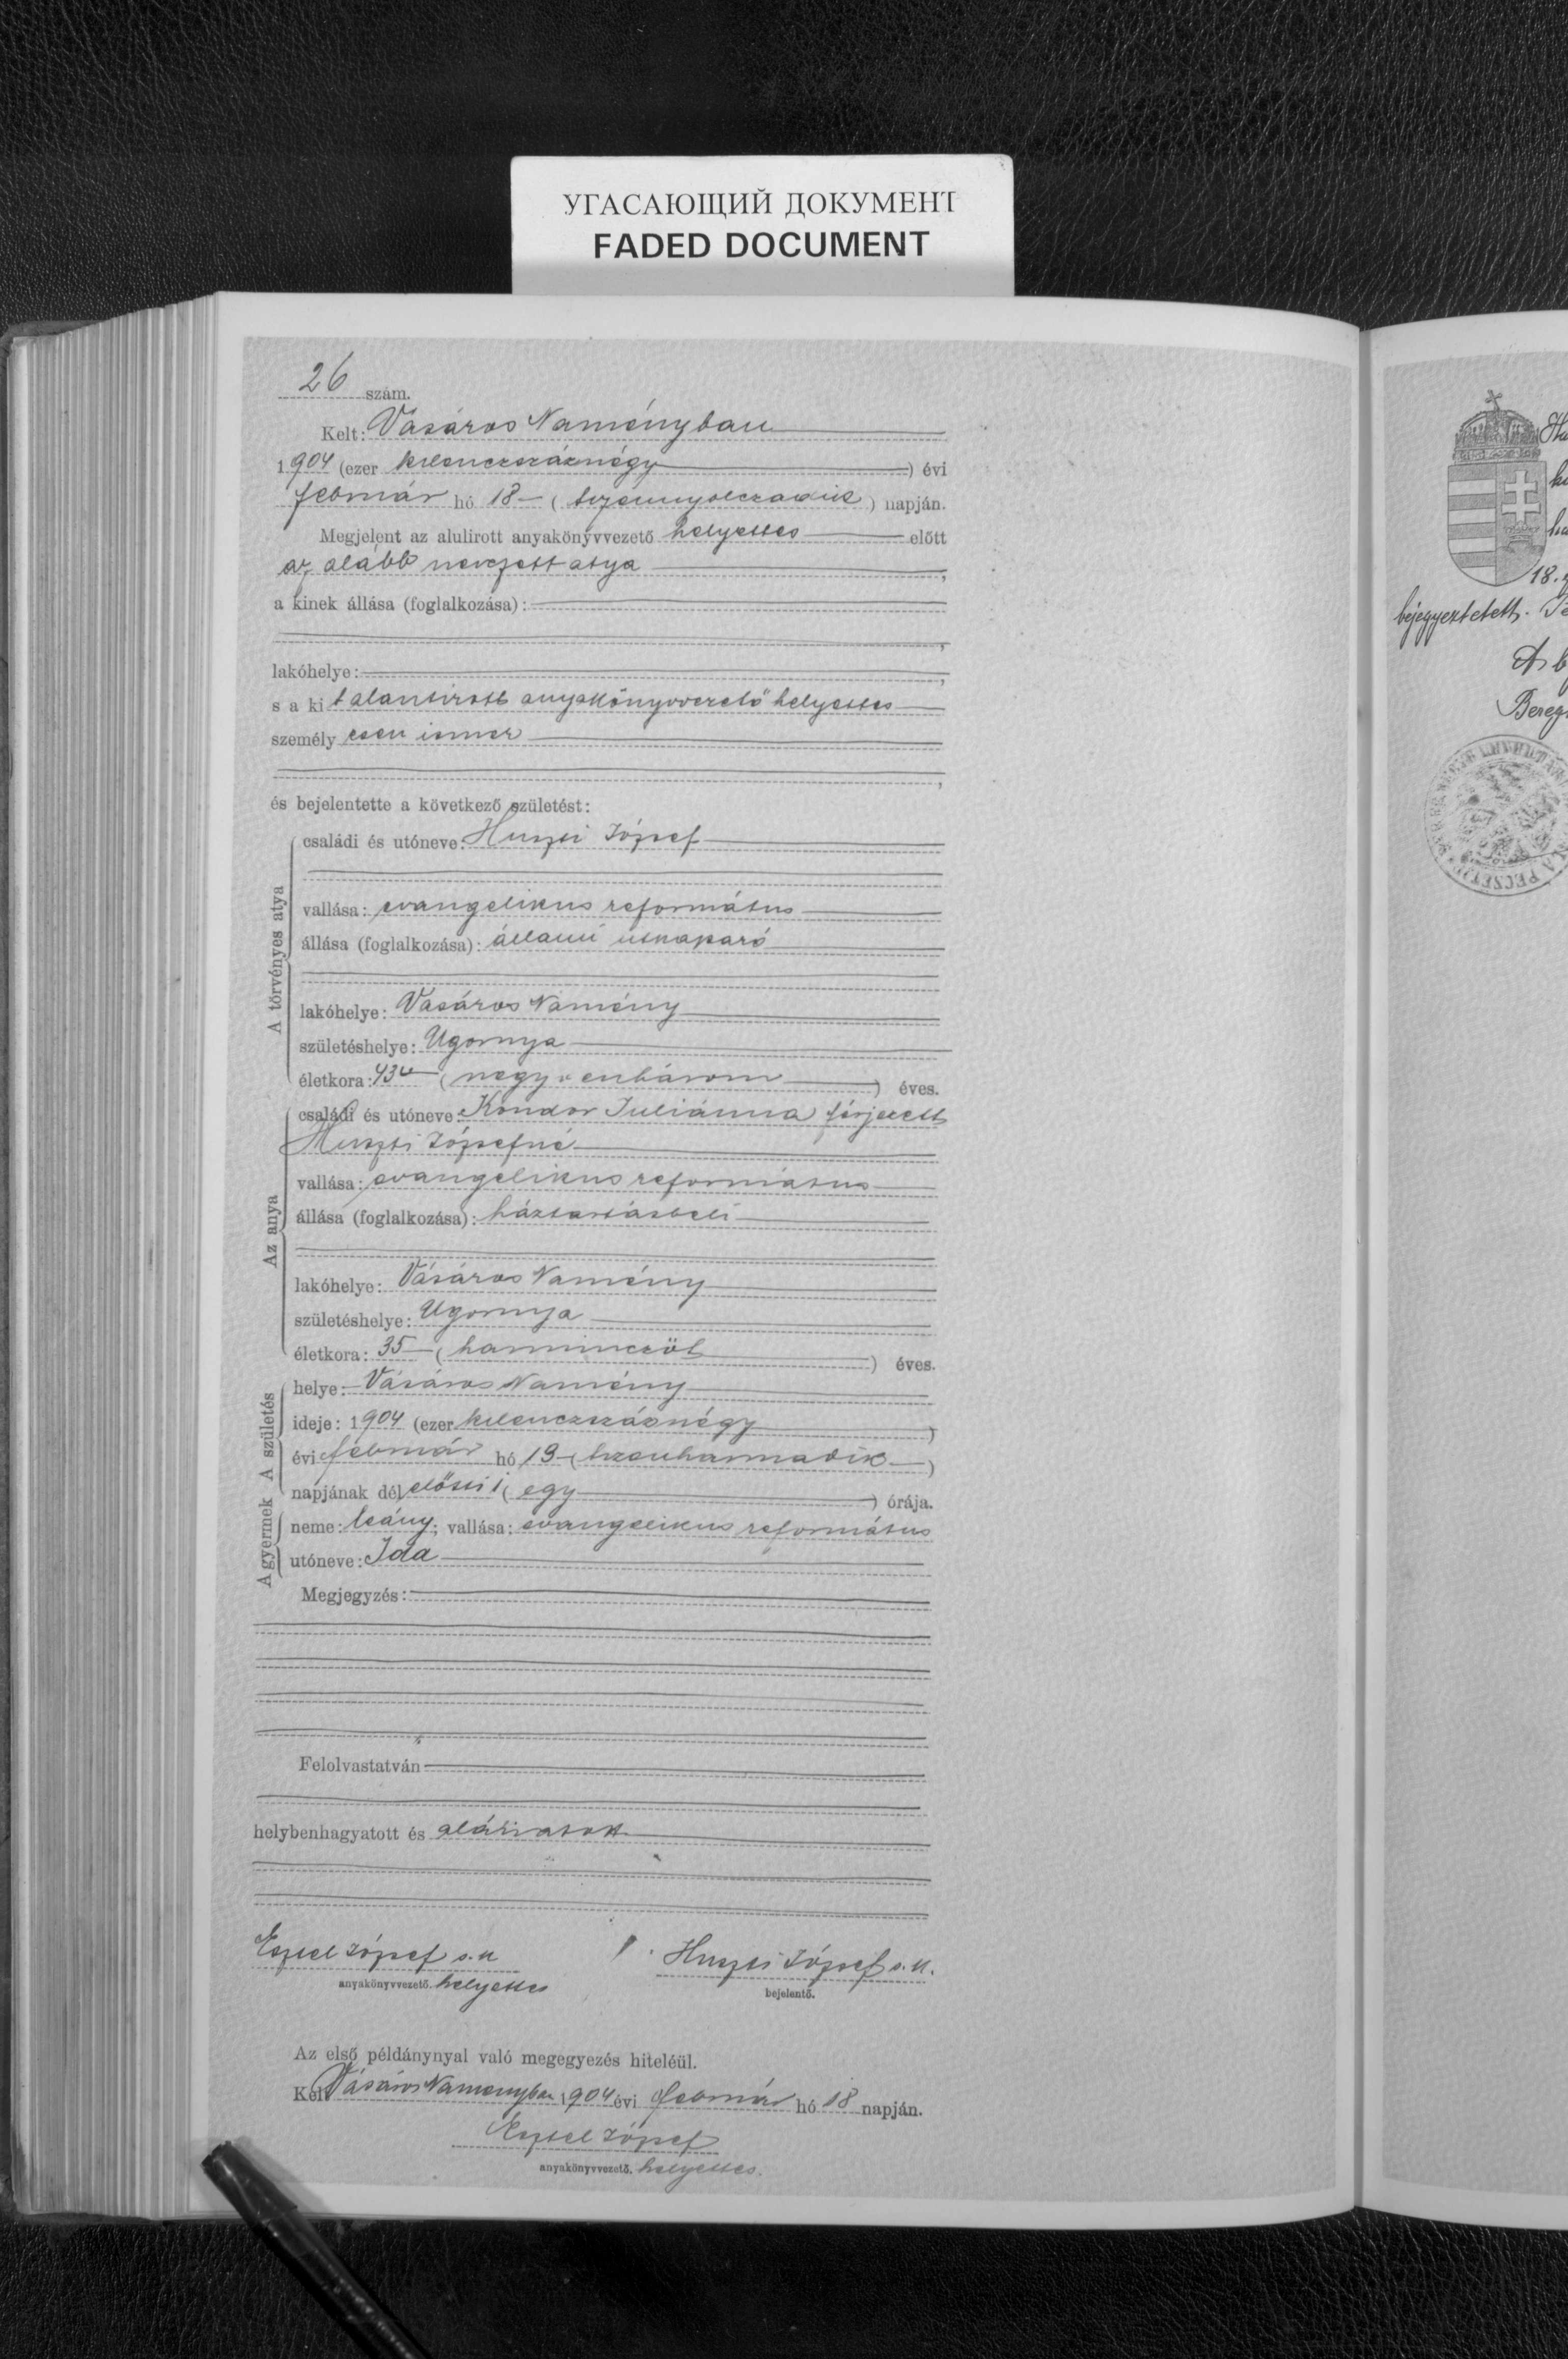 УГАСАЮЩИЙ ДОКУМЕНТ
FADED DOCUMENT
26 szám.
Kelt: Vásáros Naményban
1904 (ezer kilenczszáznégy) évi
február hó 18 (tizennyolczadik) napján.
Megjelent az alulirott anyakönyvvezető helyettes előtt
az alább nevezett atya,
a kinek állása (foglalkozása):
lakóhelye:
s a kit alantirott anyakönyvvezető helyettes
személyesen ismer
és bejelentette a következő születést:
A törvényes atya
családi és utóneve: Huszti József
vallása: evangelikus református
állása (foglalkozása): állami útkaparó
lakóhelye: Vásáros Namény
születéshelye: Ugornya
életkora: 43 (negyvenhárom) éves.
Az anya
családi és utóneve: Kondor Juliánna férjezett
Huszti Józsefné
vallása: evangelikus református
állása (foglalkozása): háztartásbeli
lakóhelye: Vásáros Namény
születéshelye: Ugornya
életkora: 35 (harminczöt) éves.
A születés
helye: Vásáros Namény
ideje: 1904 (ezer kilenczszáznégy)
évi február hó 13 (tizenharmadik)
napjának délelőtti 1 (egy) órája.
A gyermek
neme: leány; vallása: evangelikus református
utóneve: Ida
Megjegyzés:
Felolvastatván
helybenhagyatott és aláiratott
József s. k.
anyakönyvvezető helyettes
Huszti József s. k.
bejelentő.
Az első példánynyal való megegyezés hiteléül.
Kelt Vásáros Naményban 1904 évi február hó 18 napján.
József
anyakönyvvezető. helyettes.
18.
bejegyeztetett.
Bereg